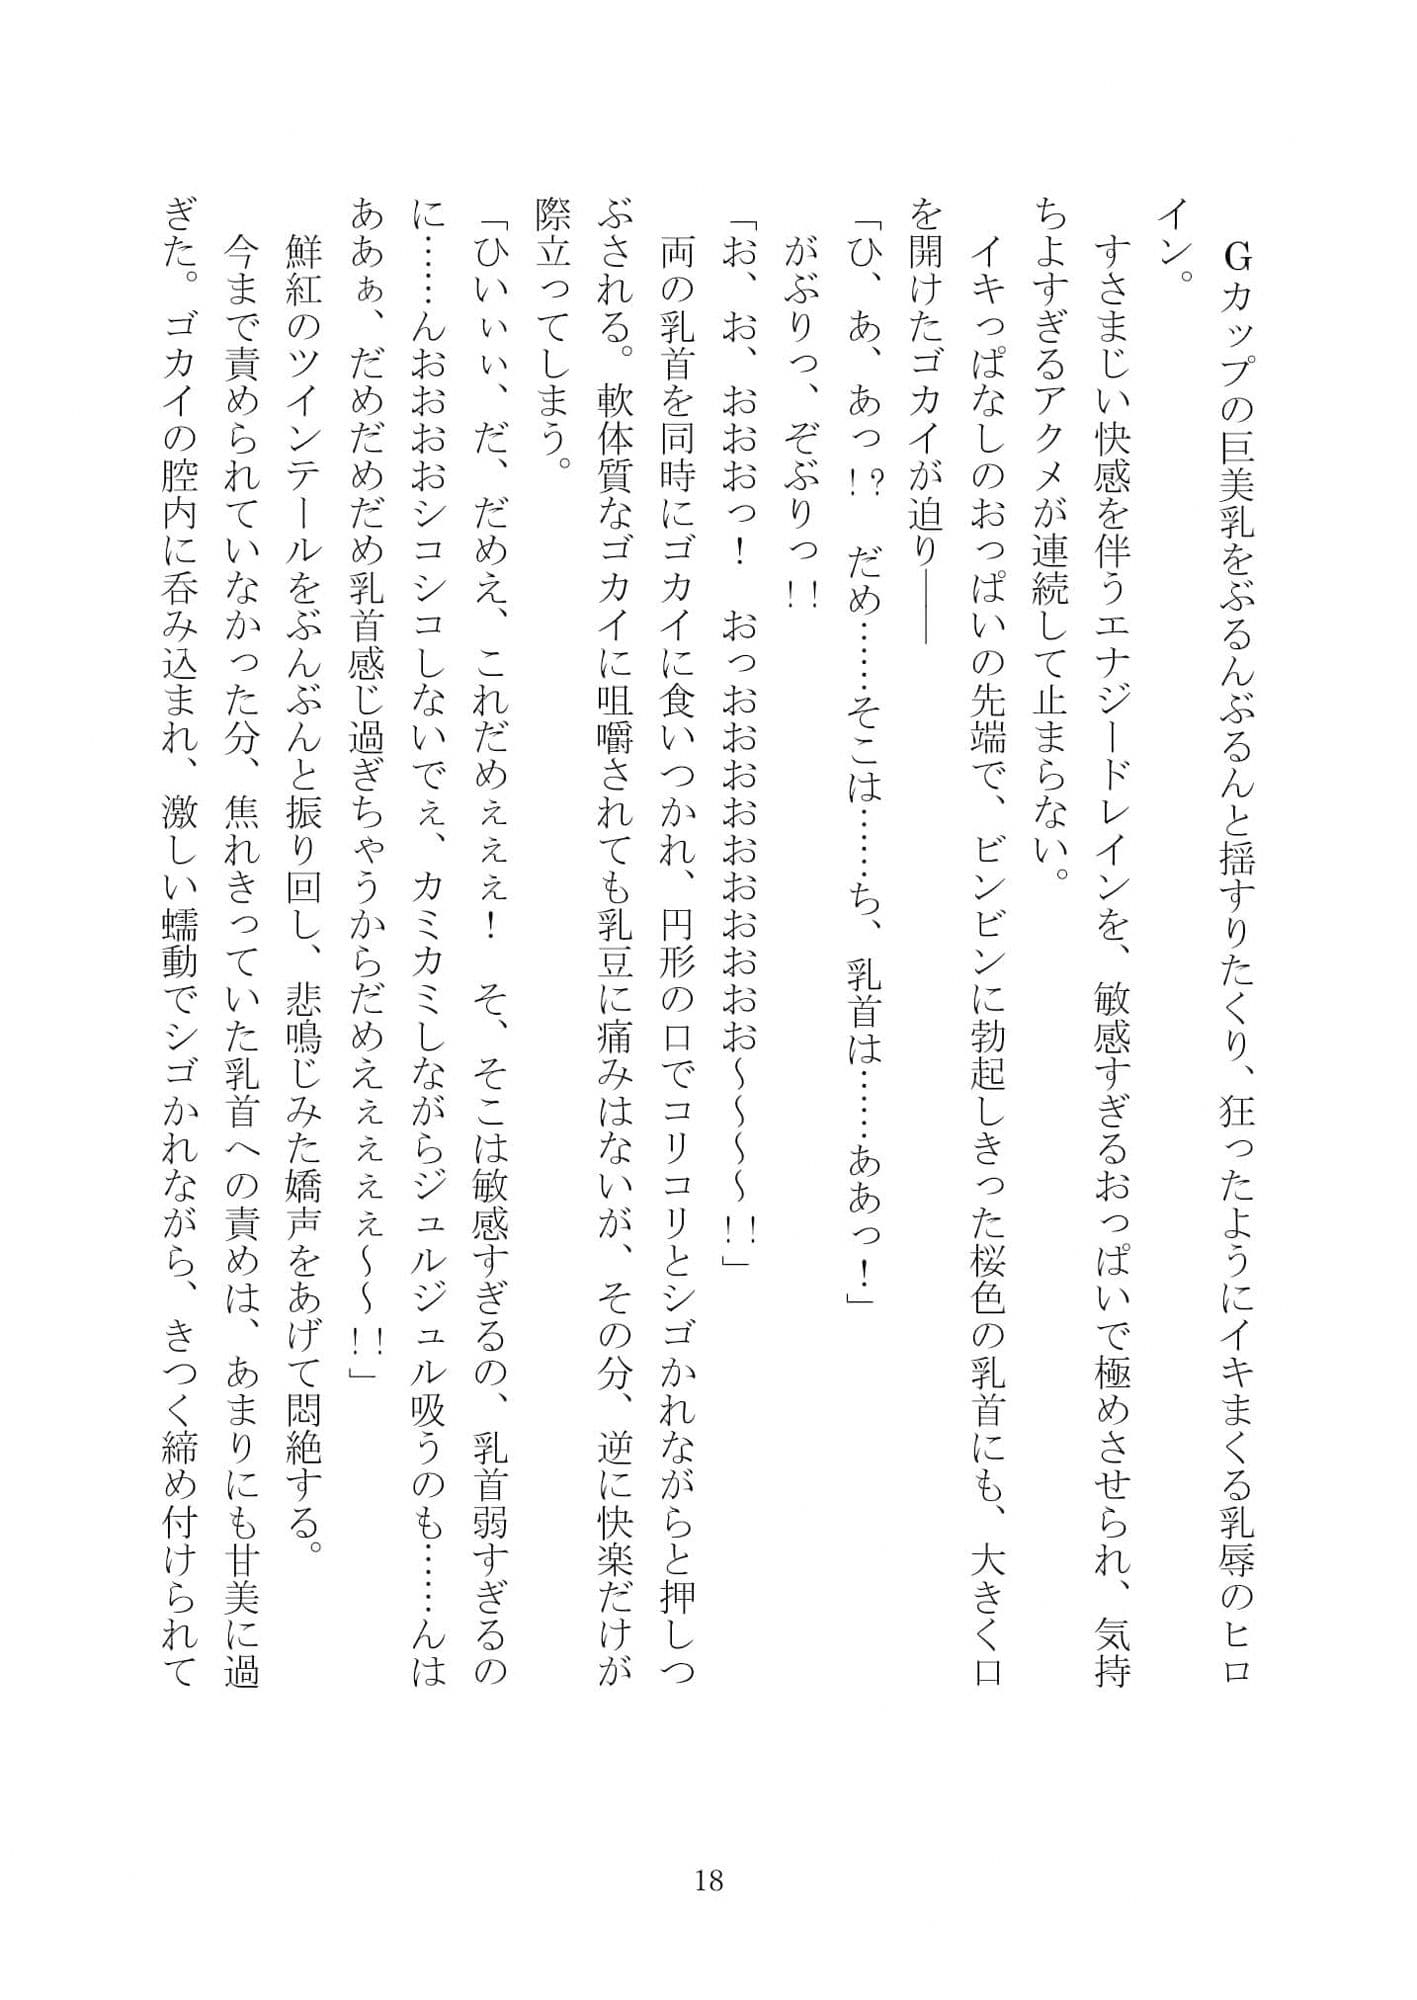 Gカップの巨美乳をぶるんぶるんと揺すりたくり、狂ったようにイキまくる乳辱のヒロ
イン。
　すさまじい快感を伴うエナジードレインを、敏感すぎるおっぱいで極めさせられ、気持
ちよすぎるアクメが連続して止まらない。
　イキっぱなしのおっぱいの先端で、ビンビンに勃起しきった桜色の乳首にも、大きく口
を開けたゴカイが迫り――
「ひ、あ、あっ!?　だめ……そこは……ち、乳首は……ああっ！」
　がぶりっ、ぞぶりっ!!
「お、お、おおおっ！　おっおおおおおおおおおお～～～～!!」
　両の乳首を同時にゴカイに食いつかれ、円形の口でコリコリとシゴかれながらと押しつ
ぶされる。軟体質なゴカイに咀嚼されても乳豆に痛みはないが、その分、逆に快楽だけが
際立ってしまう。
「ひいぃぃ、だ、だめえ、これだめぇぇぇ！　そ、そこは敏感すぎるの、乳首弱すぎるの
に……んおおおおシコシコしないでぇ、カミカミしながらジュルジュル吸うのも……んは
ああぁ、だめだめだめ乳首感じ過ぎちゃうからだめえぇぇぇぇ～～!!」
　鮮紅のツインテールをぶんぶんと振り回し、悲鳴じみた嬌声をあげて悶絶する。
　今まで責められていなかった分、焦れきっていた乳首への責めは、あまりにも甘美に過
ぎた。ゴカイの腔内に呑み込まれ、激しい蠕動でシゴかれながら、きつく締め付けられて
18